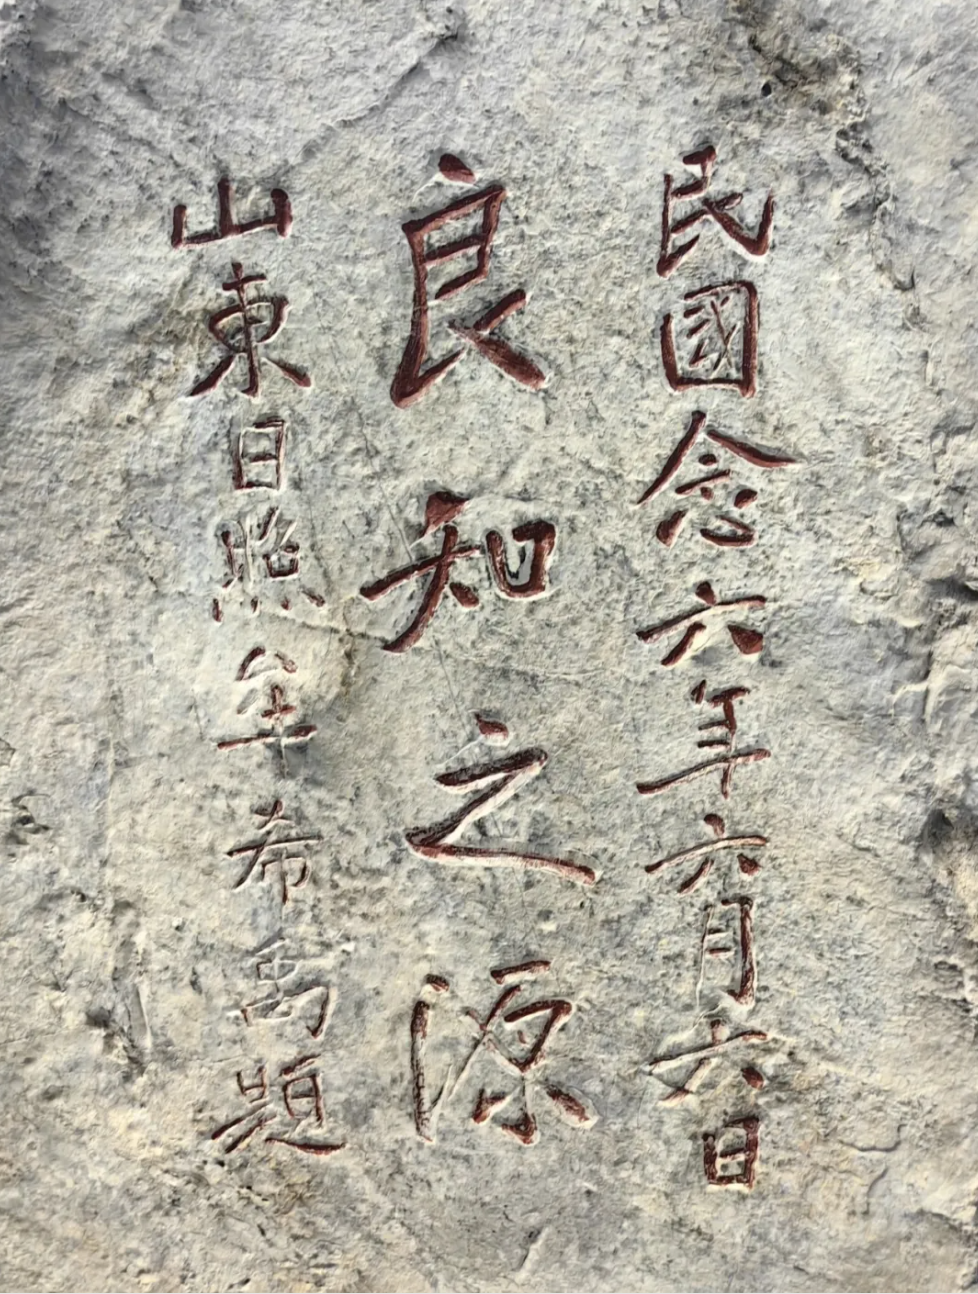 民國念六年六月六日
良知之源
山東日照牟希禹題